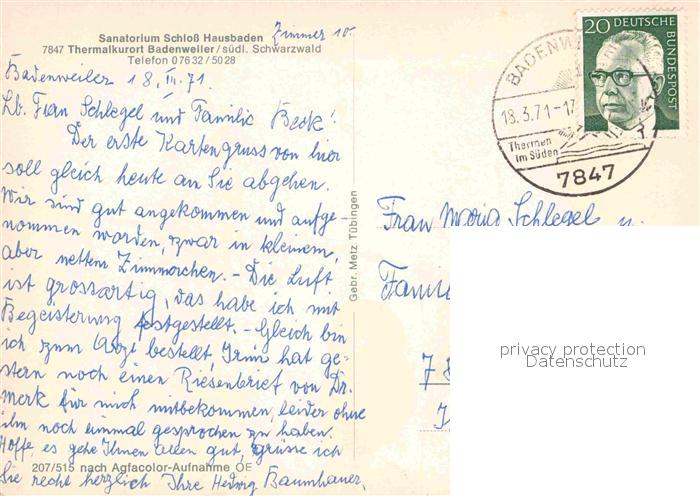 Sanatorium Schloß Hausbaden
Zimmer 10.
7847 Thermalkurort Badenweiler/südl. Schwarzwald
Telefon 07632/5028
Badenweiler 18. III. 71.
Lb. Frau Schlegel und Familie Beck!
Der erste Kartengruss von hier
soll gleich heute an Sie abgehen.
Wir sind gut angekommen und aufge-
nommen worden, zwar in kleinem,
aber nettem Zimmerchen. - Die Luft
ist grossartig, das habe ich mit
Begeisterung festgestellt. - Gleich bin
ich zum Arzt bestellt, hat ge-
stern noch einen Riesenbrief von Dr.
Merk für mich mitbekommen, leider ohne
ihn noch einmal gesprochen zu haben.
Hoffe, es gehe Ihnen allen gut, grüsse ich
Sie recht herzlich Ihre Hedwig Baumhauer.
207/515 nach Agfacolor-Aufnahme OE
Gebr. Metz Tübingen
20 DEUTSCHE
BUNDESPOST
BADENW
18.3.71-17
Thermen
im Süden
7847
Frau Maria Schlegel u.
Famil
7
privacy protection
Datenschutz